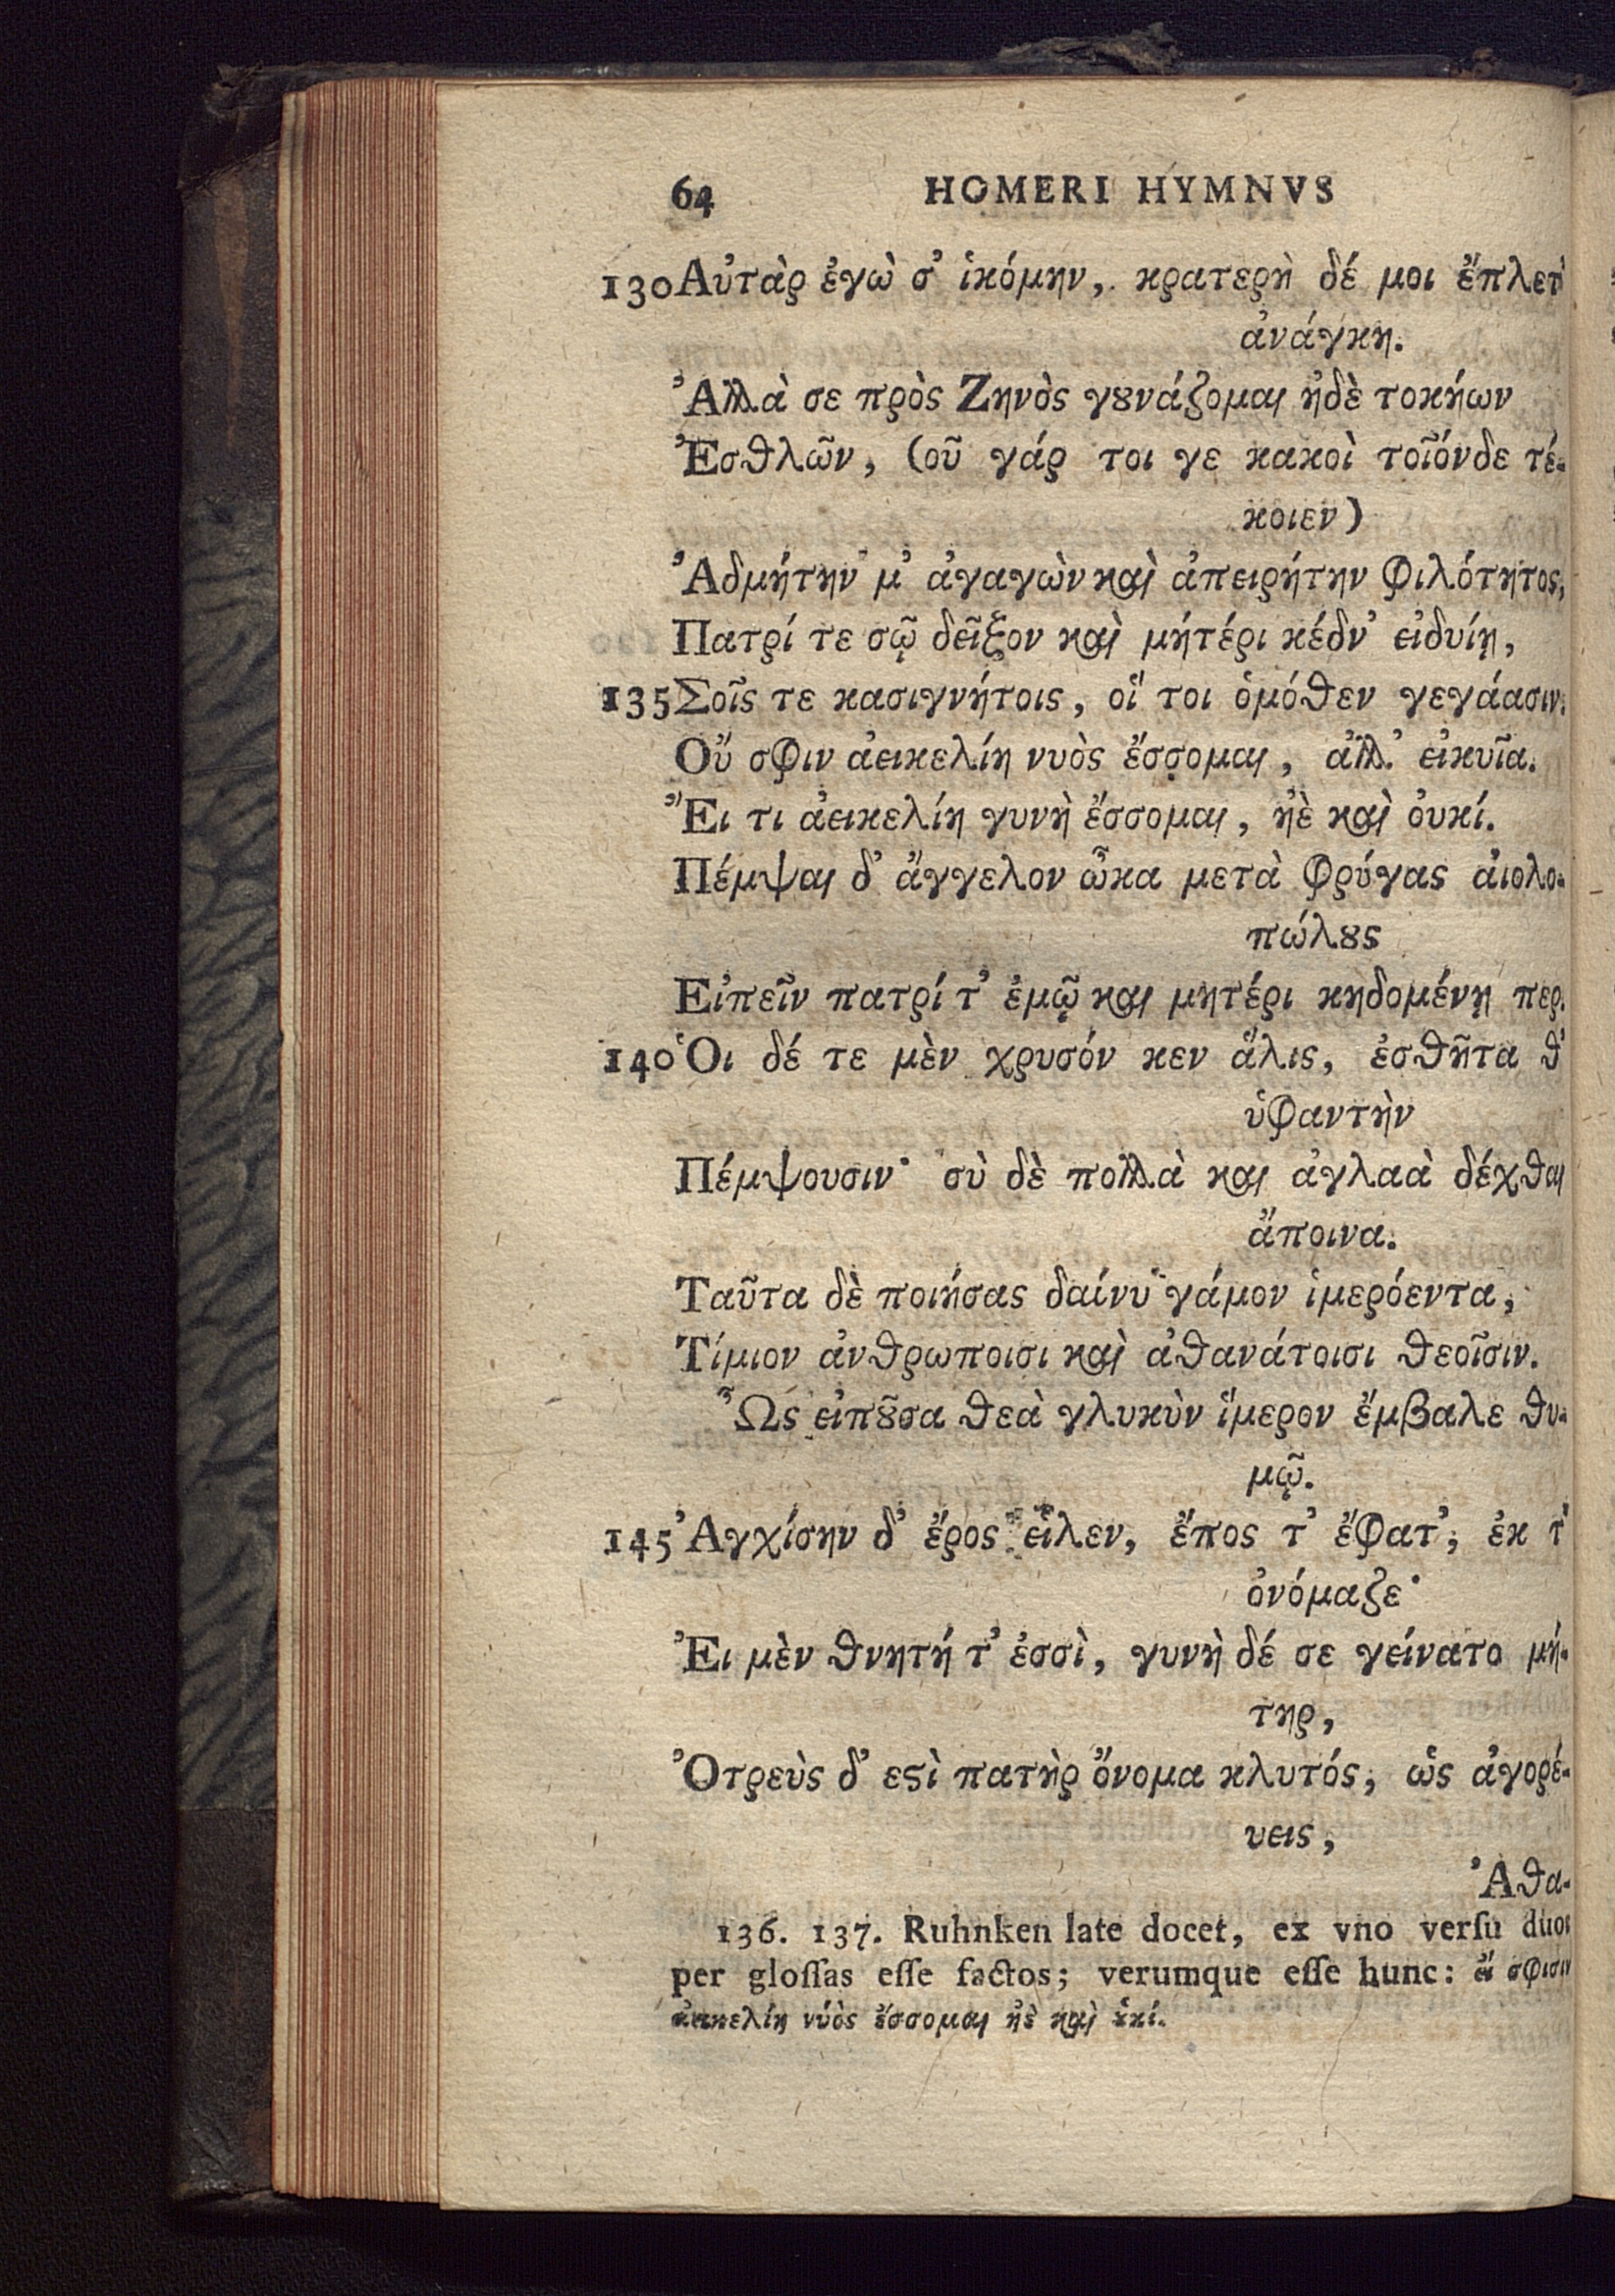 64 HOMERI HYMNVS
130 Αὐτὰρ ἐγὼ σ' ἱκόμην, κρατερὴ δέ μοι ἔπλετ'
ἀνάγκη.
Ἀλλὰ σε πρὸς Ζηνὸς γȣνάζομαι ἠδὲ τοκήων
Ἐσθλῶν, (οῦ γάρ τοι γε κακοὶ τοῖόνδε τέ-
κοιεν)
Ἀδμήτην μ' ἀγαγὼν καὶ ἀπειρήτην φιλότητος,
Πατρί τε σῷ δεῖξον καὶ μήτέρι κέδν' εἰδυίῃ,
135 Σοῖς τε κασιγνήτοις, οἵ τοι ὁμόθεν γεγάασιν.
Οὔ σφιν ἀεικελίη νυὸς ἔσσομαι, ἀλλ' εἰκυῖα.
Ἔι τι ἀεικελίη γυνὴ ἔσσομαι, ἠὲ καὶ ὀυκί.
Πέμψαι δ' ἄγγελον ὦκα μετὰ Φρύγας ἀιολο-
πώλȣς
Εἰπεῖν πατρί τ' ἐμῷ και μητέρι κηδομένῃ περ.
140 Ὁι δέ τε μὲν χρυσόν κεν ἅλις, ἐσθῆτα θ'
ὑφαντὴν
Πέμψουσιν· σὺ δὲ πολλὰ και ἀγλαὰ δέχθαι
ἄποινα.
Ταῦτα δὲ ποιήσας δαίνυ γάμον ἱμερόεντα,
Τίμιον ἀνθρωποισι καὶ ἀθανάτοισι θεοῖσιν.
Ὦς εἰπȣ͂σα θεὰ γλυκὺν ἵμερον ἔμβαλε θυ-
μῷ.
145 Ἀγχίσην δ' ἔρος εἷλεν, ἔπος τ' ἔφατ', ἐκ τ'
ὀνόμαζε·
Ἐι μὲν θνητή τ' ἐσσὶ, γυνὴ δέ σε γείνατο μή-
τηρ,
Ὀτρεὺς δ' εϛὶ πατὴρ ὄνομα κλυτός, ὡς ἀγορέ-
υεις,
Ἀθα-
136. 137. Ruhnken late docet, ex vno verſu duos
per gloſſas eſſe factos; verumque eſſe hunc: ȣ̓́ σφισιν
ἀεικελίη νύὸς ἔσσομαι ἠὲ καὶ ȣ̓κί.